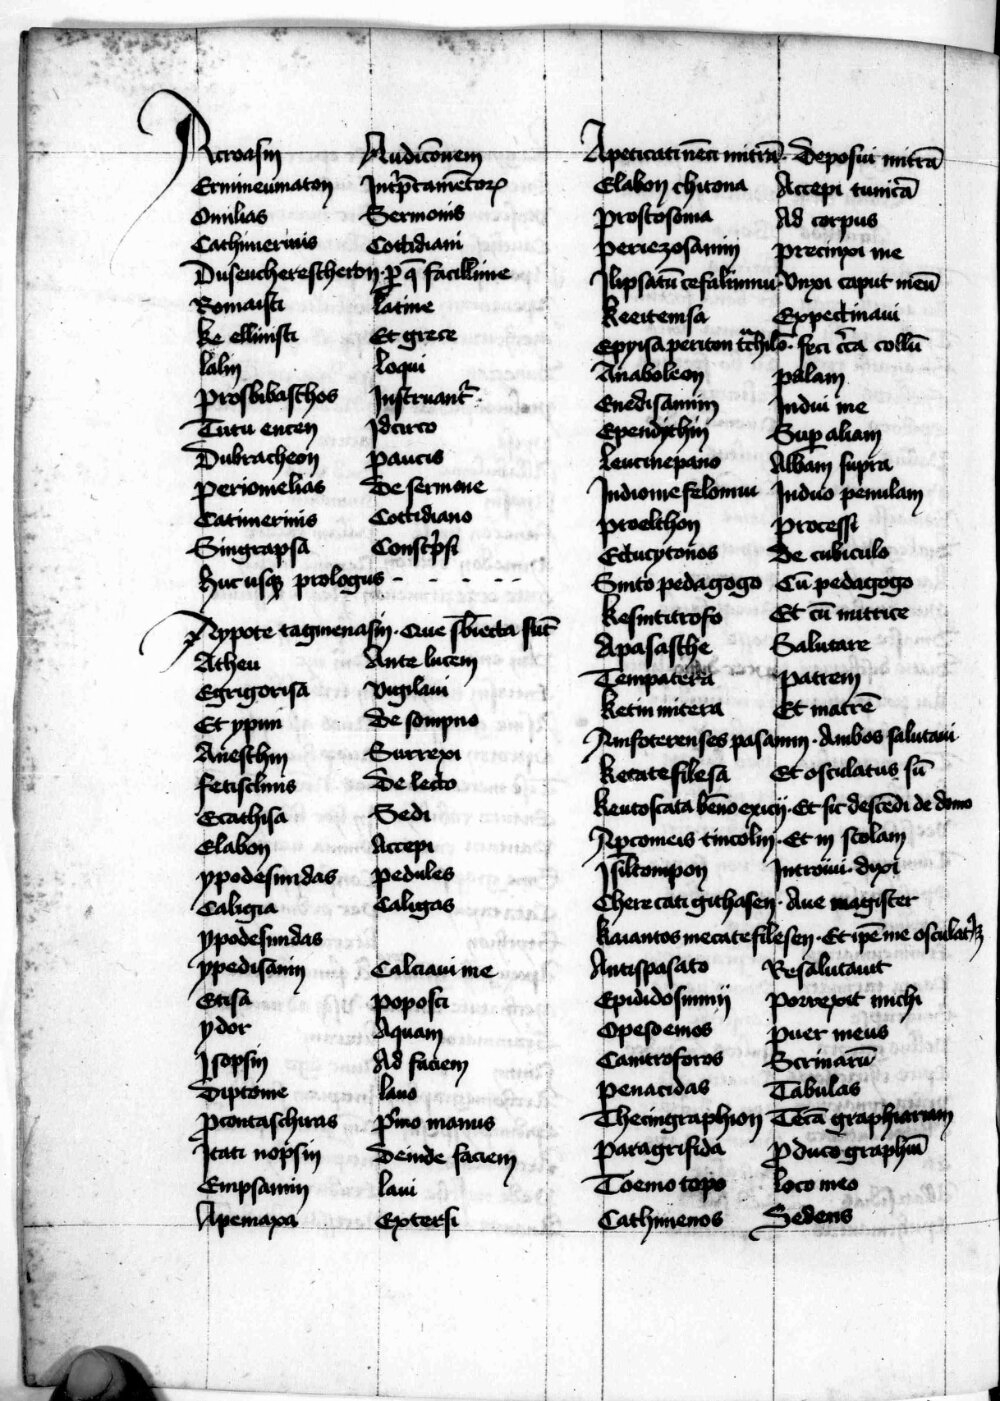 Acroasin Audiconem
Ermineumaton Int'ptamētorꝝ
Omilias Sermonis
Cathimerinis Cottidiani
Duseucherescheron · p̱ q̄ facillime
Romaisti latine
ke ellinisti Et grece
lalin loqui
prosbibasthos Instruantʳ
Tutu encen Idcirco
Dubracheon paucis
periomelias De sermone
Catimerinis Cottidiano
Singrapsa Conscp̄si
huc usqꝫ prologus - - - - -
Aypote tagmenasin · Que sb̄iecta sūt
Atheu Ante lucem
Egrigorisa vigilaui
Et ypnu de sompno
Anesthin Surrexi
fetisclinis De lecto
Ecathisa Sedi
Elabon Accepi
ypodesmdas pedules
Caligia Caligas
ypodesmdas
ypedisamin Calciaui me
Etisa poposci
ydor Aquam
Isopsin Ad faciem
Diptome lauo
pcontaschiras pͥmo manus
Itati nopsin Deinde faciem
Empsamin laui
Apemaxa Extersi
Apeticatinēci mitrā · Deposui mitrā
Elabon chitona Accepi tunicā
prostosoma Ad corpus
periezosamin precinxi me
Ilipsatū cefalinmu · vnxi caput meū
keeitemsa Expectinaui
Epyisa periton tᵃchilō · feci cͥca collū
Anaboleon palam
Enedisamin Indui me
Ependythin Sup̱ aliam
leucinepano Albam supra
Indiomefelomiu Induo penulam
proelthon processi
Ectucytonos De cubiculo
Sinto pedagogo Cū pedagogo
kesintitrofo Et cū nutrice
Apasasthe Salutare
Tempatera patrem
ketin mitera Et matrē
Amfoterenses pasamin · Ambos salutaui
ketatefilesa Et osculatus sū
keutoscata bēnoexicij · Et sic descēdi de domo
Ap̱comeis tincolin · Et in scolam
Isiltompon Introiui · dixi
Chere cati githasen · Aue magister
kaiantos mecatefilesen · Et ip̄e me osculatꝰ
Antispasato Resalutauit
Epididosinmij porrexit michi
Opesoemos puer meus
Camtroforos Scrinariū
penacidas Tabulas
Thecingraphion Tecā graphiariam
paragrifida p̱duco graphiū
Toemo topo loco meo
Cathimenos Sedens